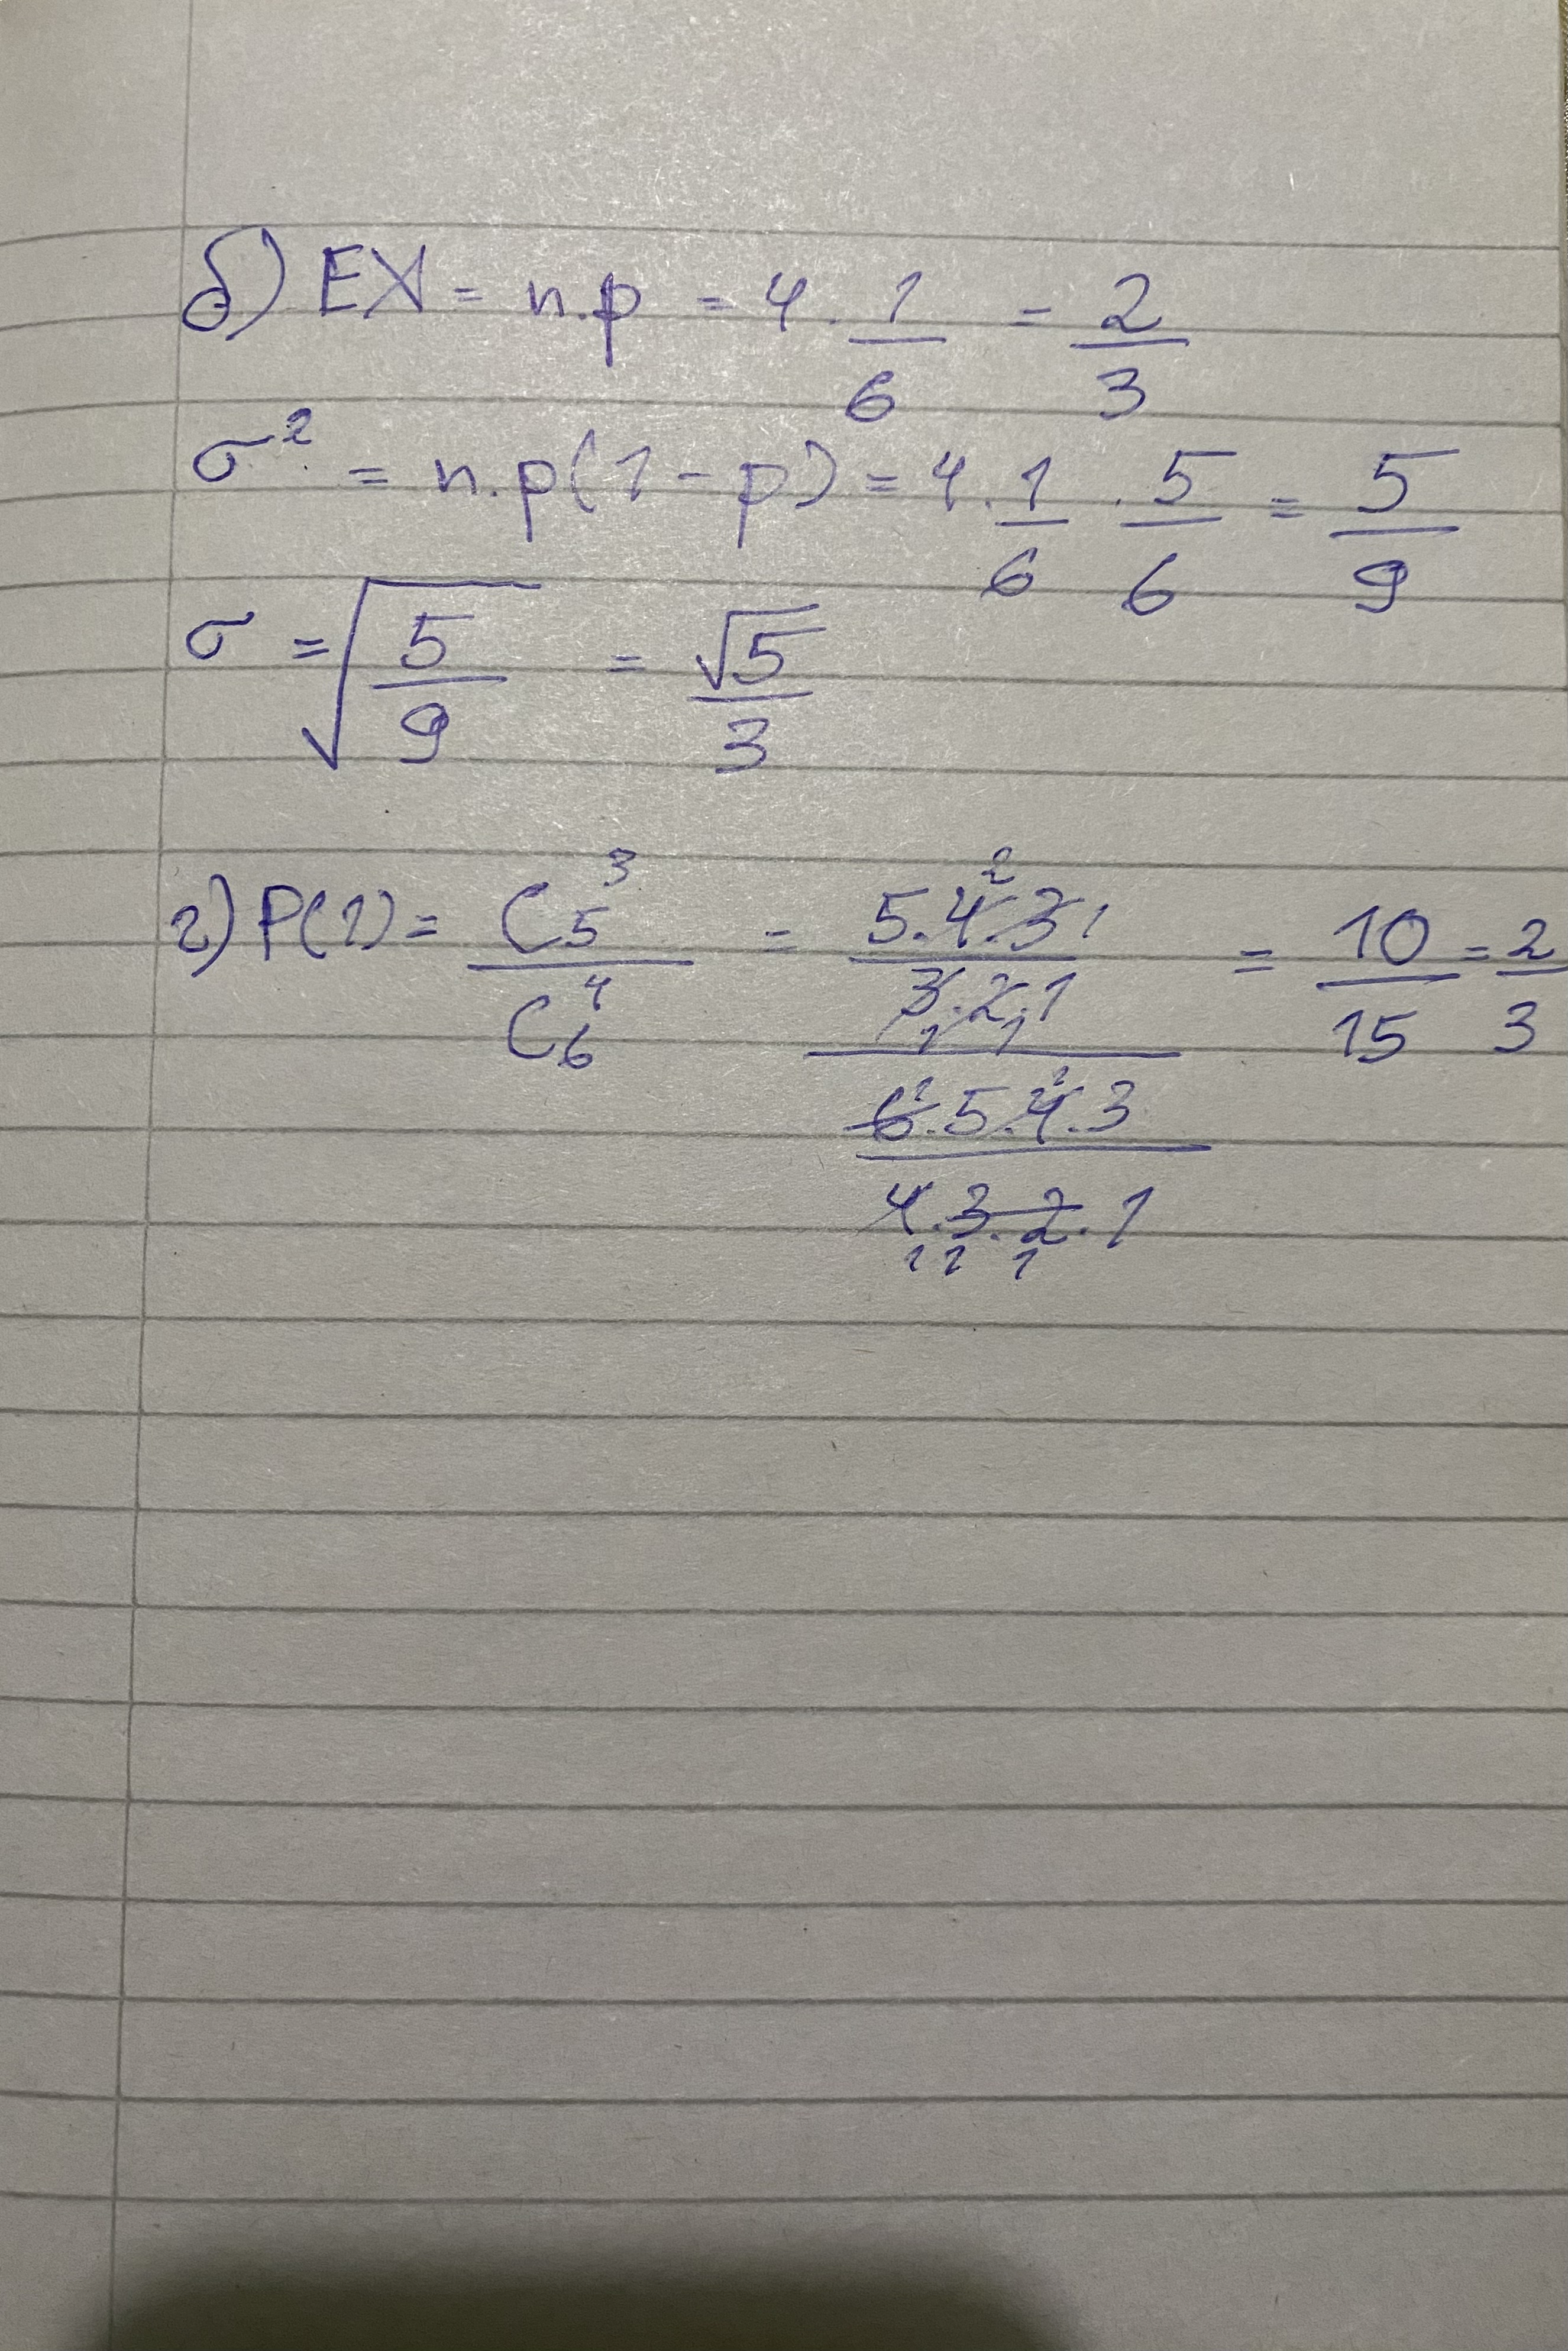 б) EX = n.p = 4 . 1/6 = 2/3
σ² = n.p(1-p) = 4 . 1/6 . 5/6 = 5/9
σ = √(5/9) = √5/3
г) P(1) = C₅³/C₆⁴ = (5.4.3/3.2.1)/(6.5.4.3/4.3.2.1) = 10/15 = 2/3